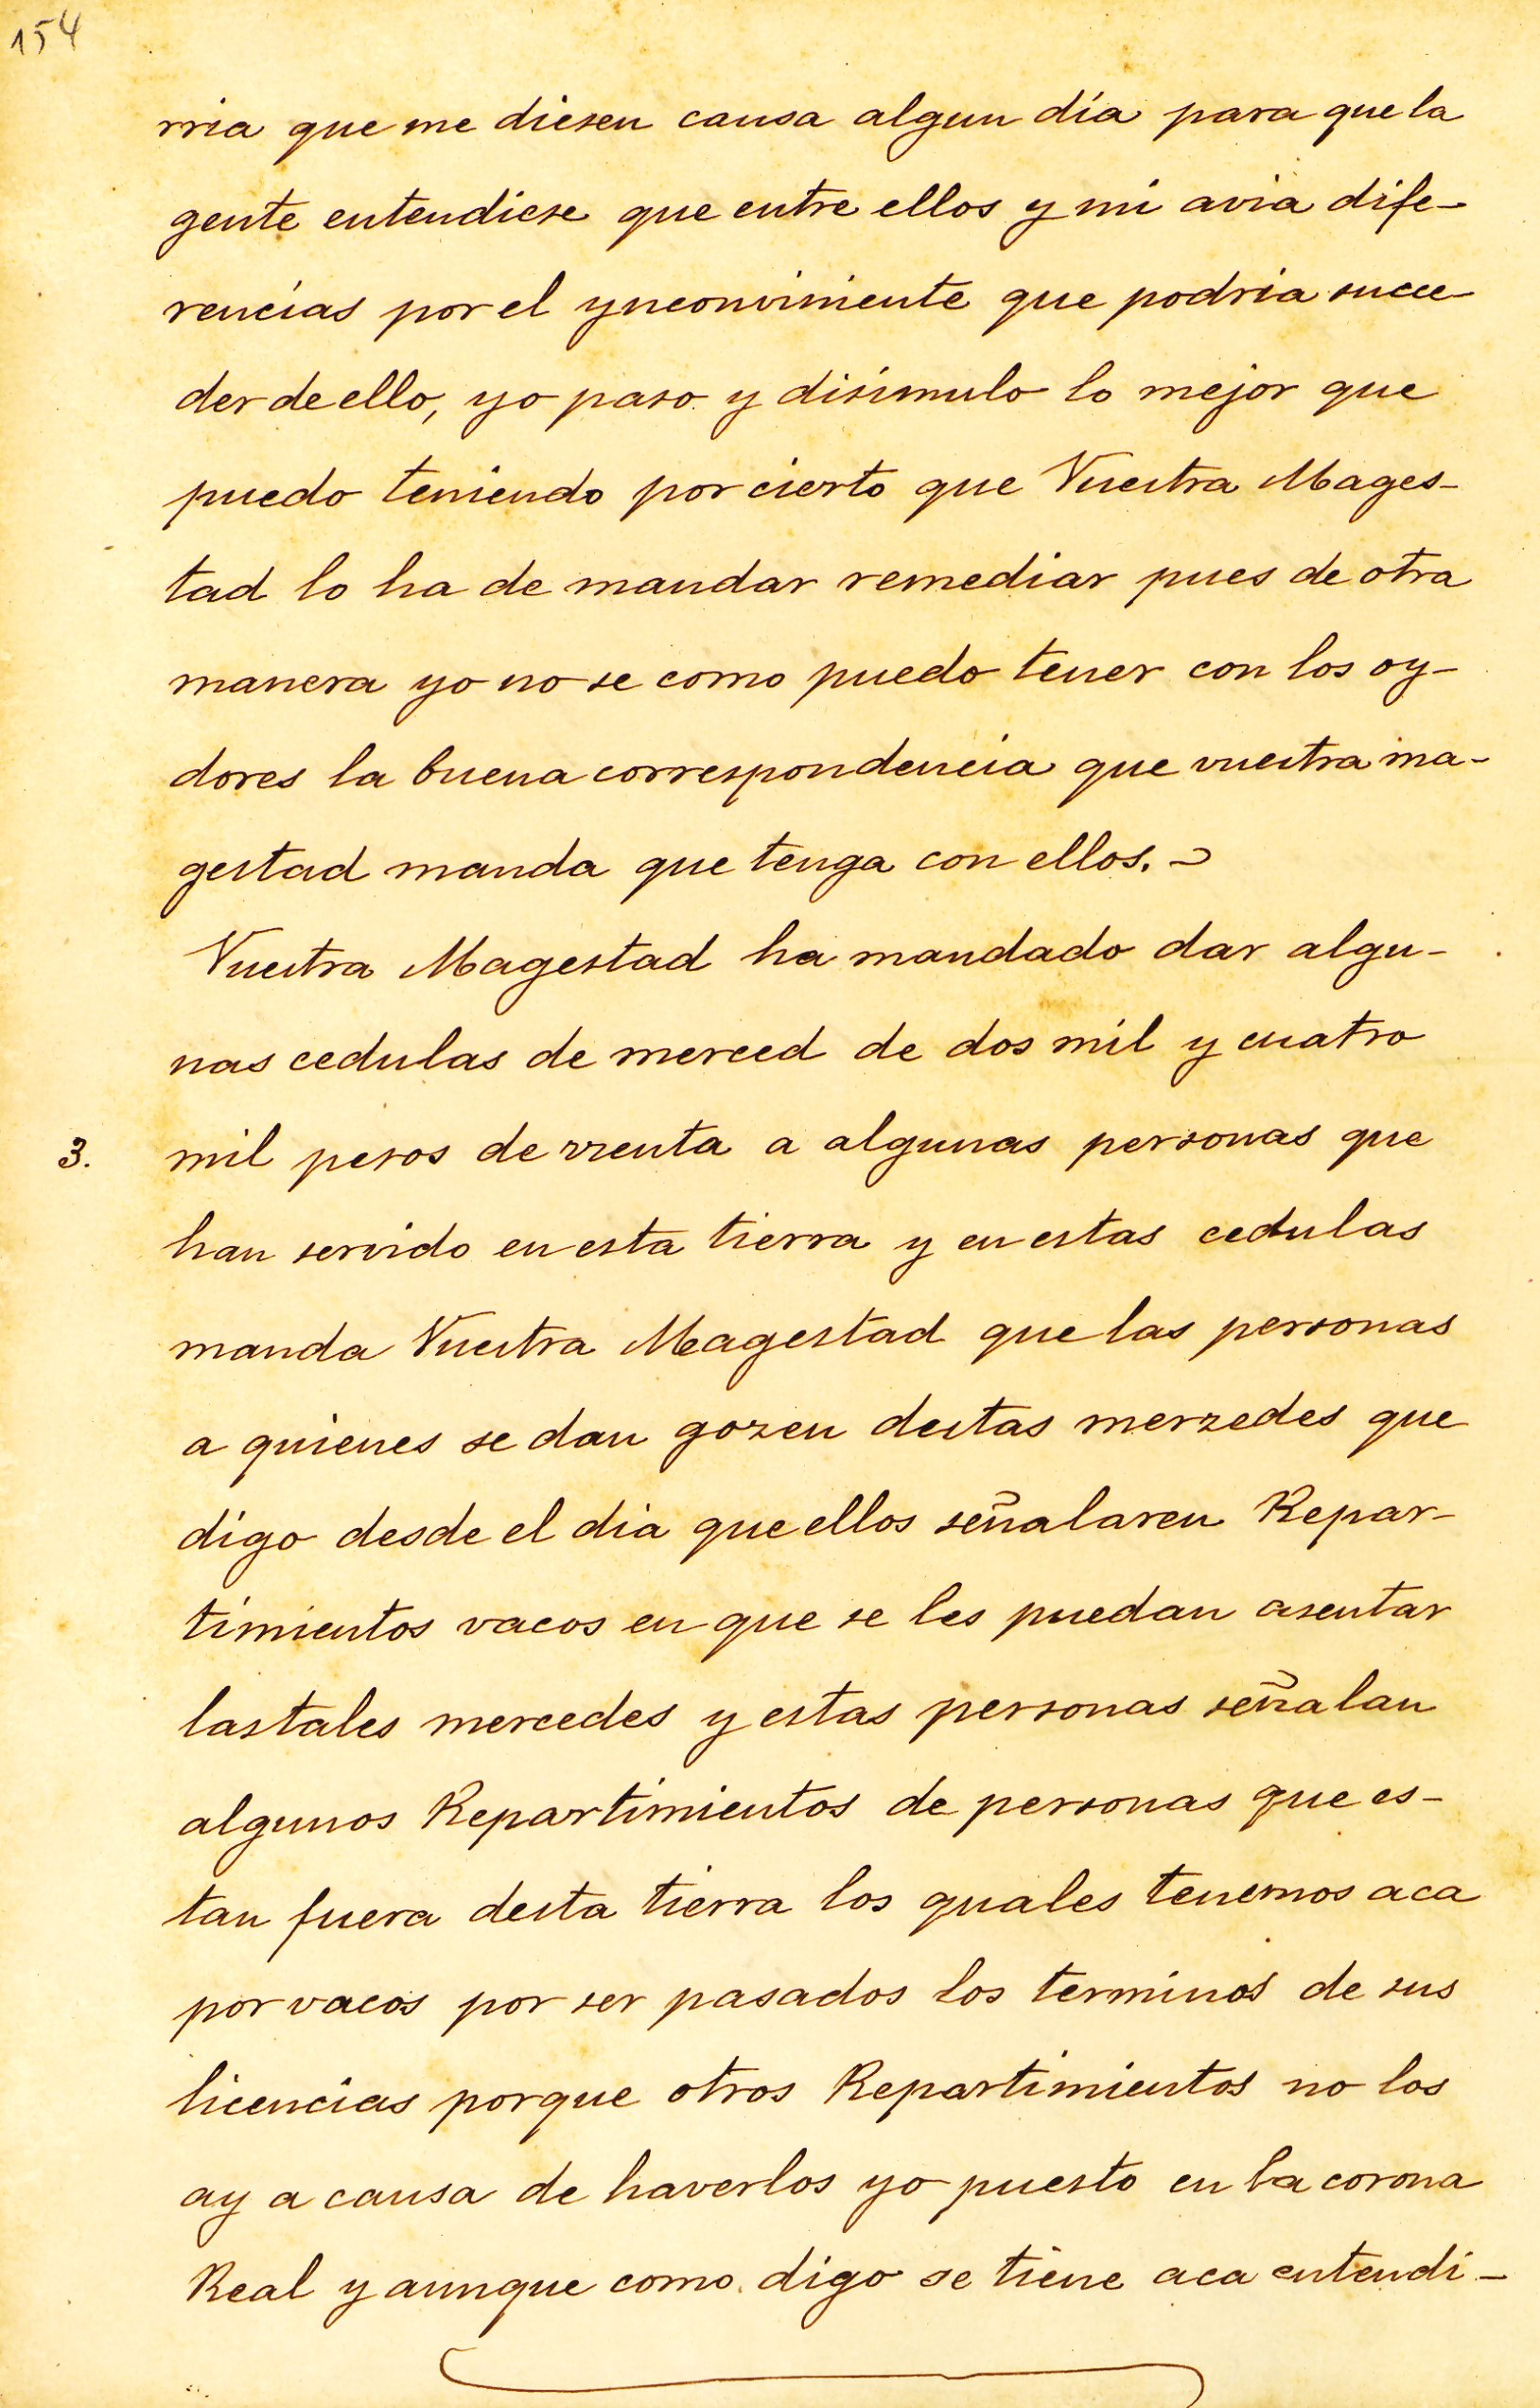 154
rria que me diesen causa algun día para que la
gente entendiese que entre ellos y mi avia dife-
rencias por el ynconviniente que podria succe-
der de ello, yo paso y disimulo lo mejor que
puedo teniendo por cierto que Vuestra Mages-
tad lo ha de mandar remediar pues de otra
manera yo no se como puedo tener con los oy-
dores la buena correspondencia que vuestra ma-
gestad manda que tenga con ellos.
Vuestra Magestad ha mandado dar algu-
nas cedulas de merced de dos mil y cuatro
3. mil pesos de rrenta a algunas personas que
han servido en esta tierra y en estas cedulas
manda Vuestra Magestad que las personas
a quienes se dan gozen destas merzedes que
digo desde el dia que ellos señalaren Repar-
timientos vacos en que se les puedan asentar
las tales mercedes y estas personas señalan
algunos Repartimientos de personas que es-
tan fuera desta tierra los quales tenemos aca
por vacos por ser pasados los terminos de sus
licencias porque otros Repartimientos no los
ay a causa de haverlos yo puesto en la corona
Real y aunque como digo se tiene aca entendi-